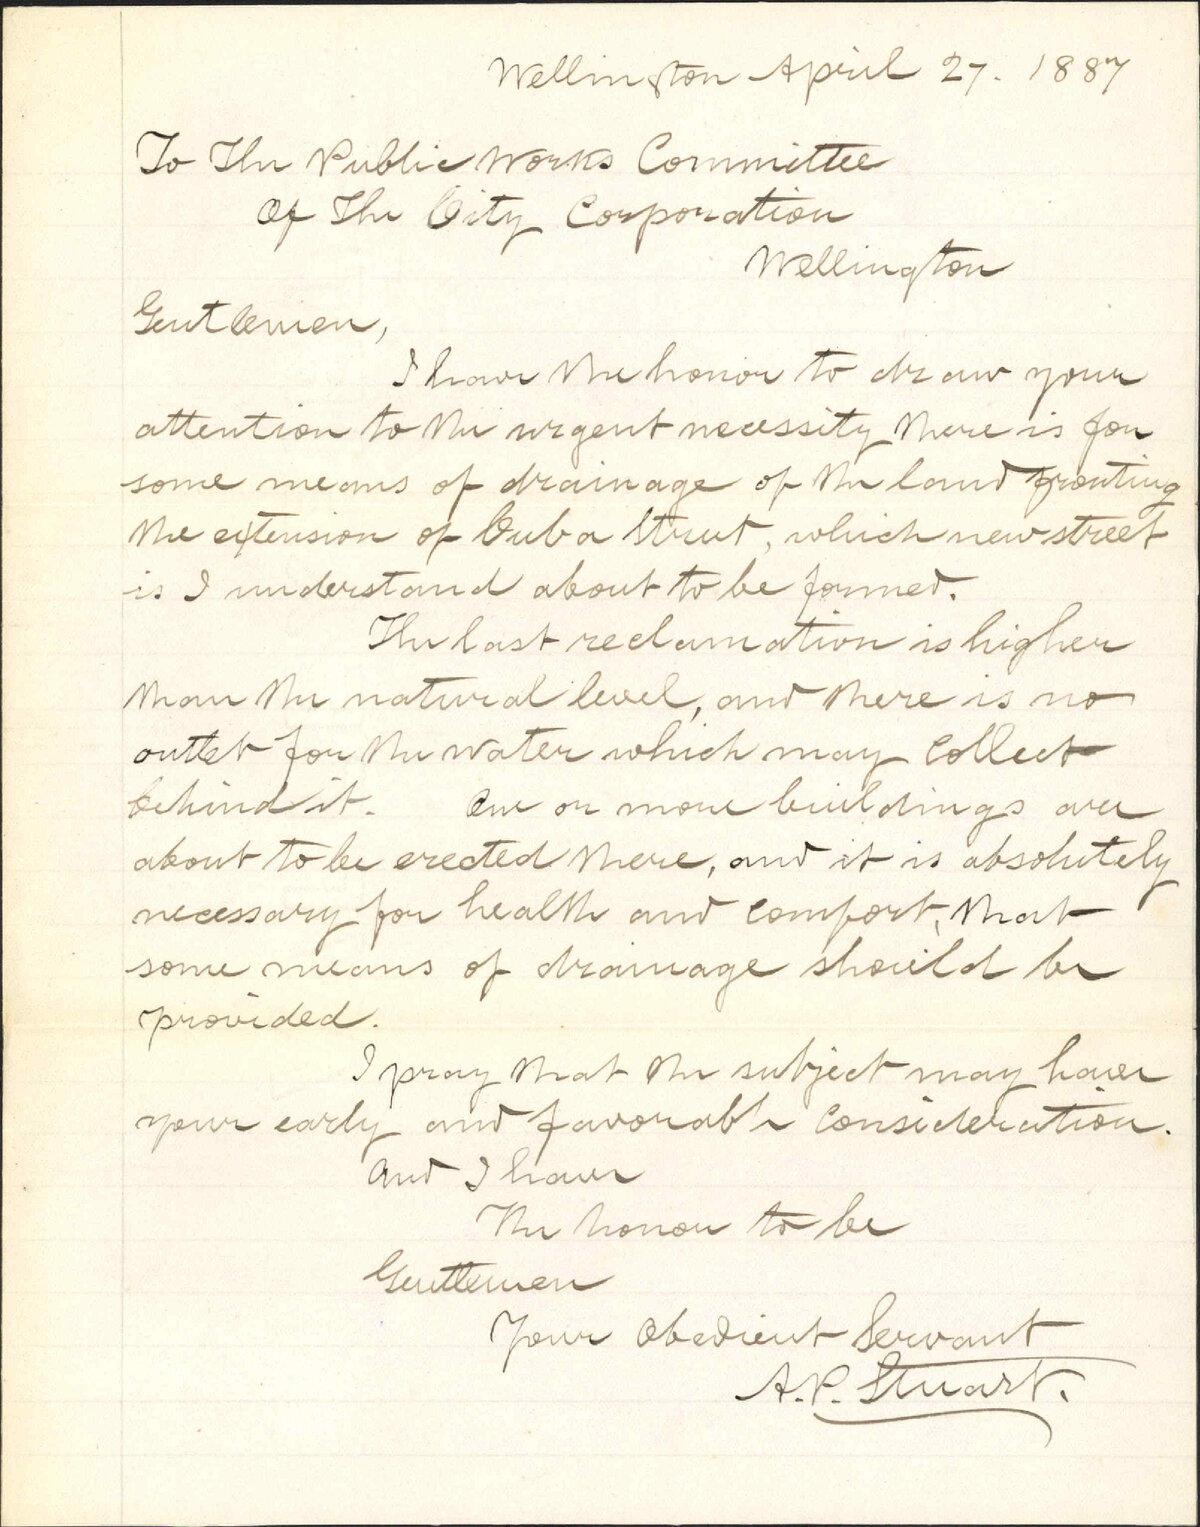 Wellington April 27. 1887
To The Public Works Committee
Of The City Corporation
Wellington
Gentlemen,
I have the honor to draw your
attention to the urgent necessity there is for
some means of drainage of the land fronting
the extension of Cuba Street, which new street
is I understand about to be formed.
The last reclamation is higher
than the natural level, and there is no
outlet for the water which may collect
behind it. One or more buildings are
about to be erected there, and it is absolutely
necessary for health and comfort, that
some means of drainage should be
provided.
I pray that the subject may have
your early and favorable consideration.
And I have
The honor to be
Gentlemen
Your Obedient Servant
A.P. Stuart.